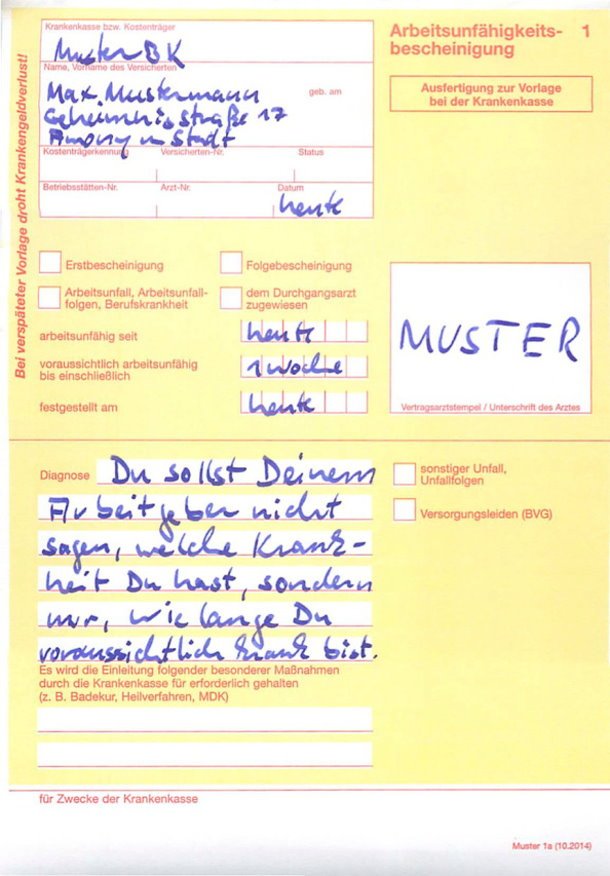 Bei verspäteter Vorlage droht Krankengeldverlust!
Krankenkasse bzw. Kostenträger
Muster BK
Name, Vorname des Versicherten
Max Mustermann
geb. am
Geheimnisstraße 17
Anonym in Stadt
Kostenträgerkennung Versicherten-Nr. Status
Betriebsstätten-Nr. Arzt-Nr. Datum
heute
Arbeitsunfähigkeits- 1
bescheinigung
Ausfertigung zur Vorlage
bei der Krankenkasse
Erstbescheinigung Folgebescheinigung
Arbeitsunfall, Arbeitsunfall-
folgen, Berufskrankheit
dem Durchgangsarzt
zugewiesen
arbeitsunfähig seit heute
voraussichtlich arbeitsunfähig
bis einschließlich 1 Woche
festgestellt am heute
MUSTER
Vertragsarztstempel / Unterschrift des Arztes
Diagnose Du sollst Deinem
Arbeitgeber nicht
sagen, welche Krank-
heit Du hast, sondern
nur, wie lange Du
voraussichtlich krank bist.
sonstiger Unfall,
Unfallfolgen
Versorgungsleiden (BVG)
Es wird die Einleitung folgender besonderer Maßnahmen
durch die Krankenkasse für erforderlich gehalten
(z. B. Badekur, Heilverfahren, MDK)
für Zwecke der Krankenkasse
Muster 1a (10.2014)